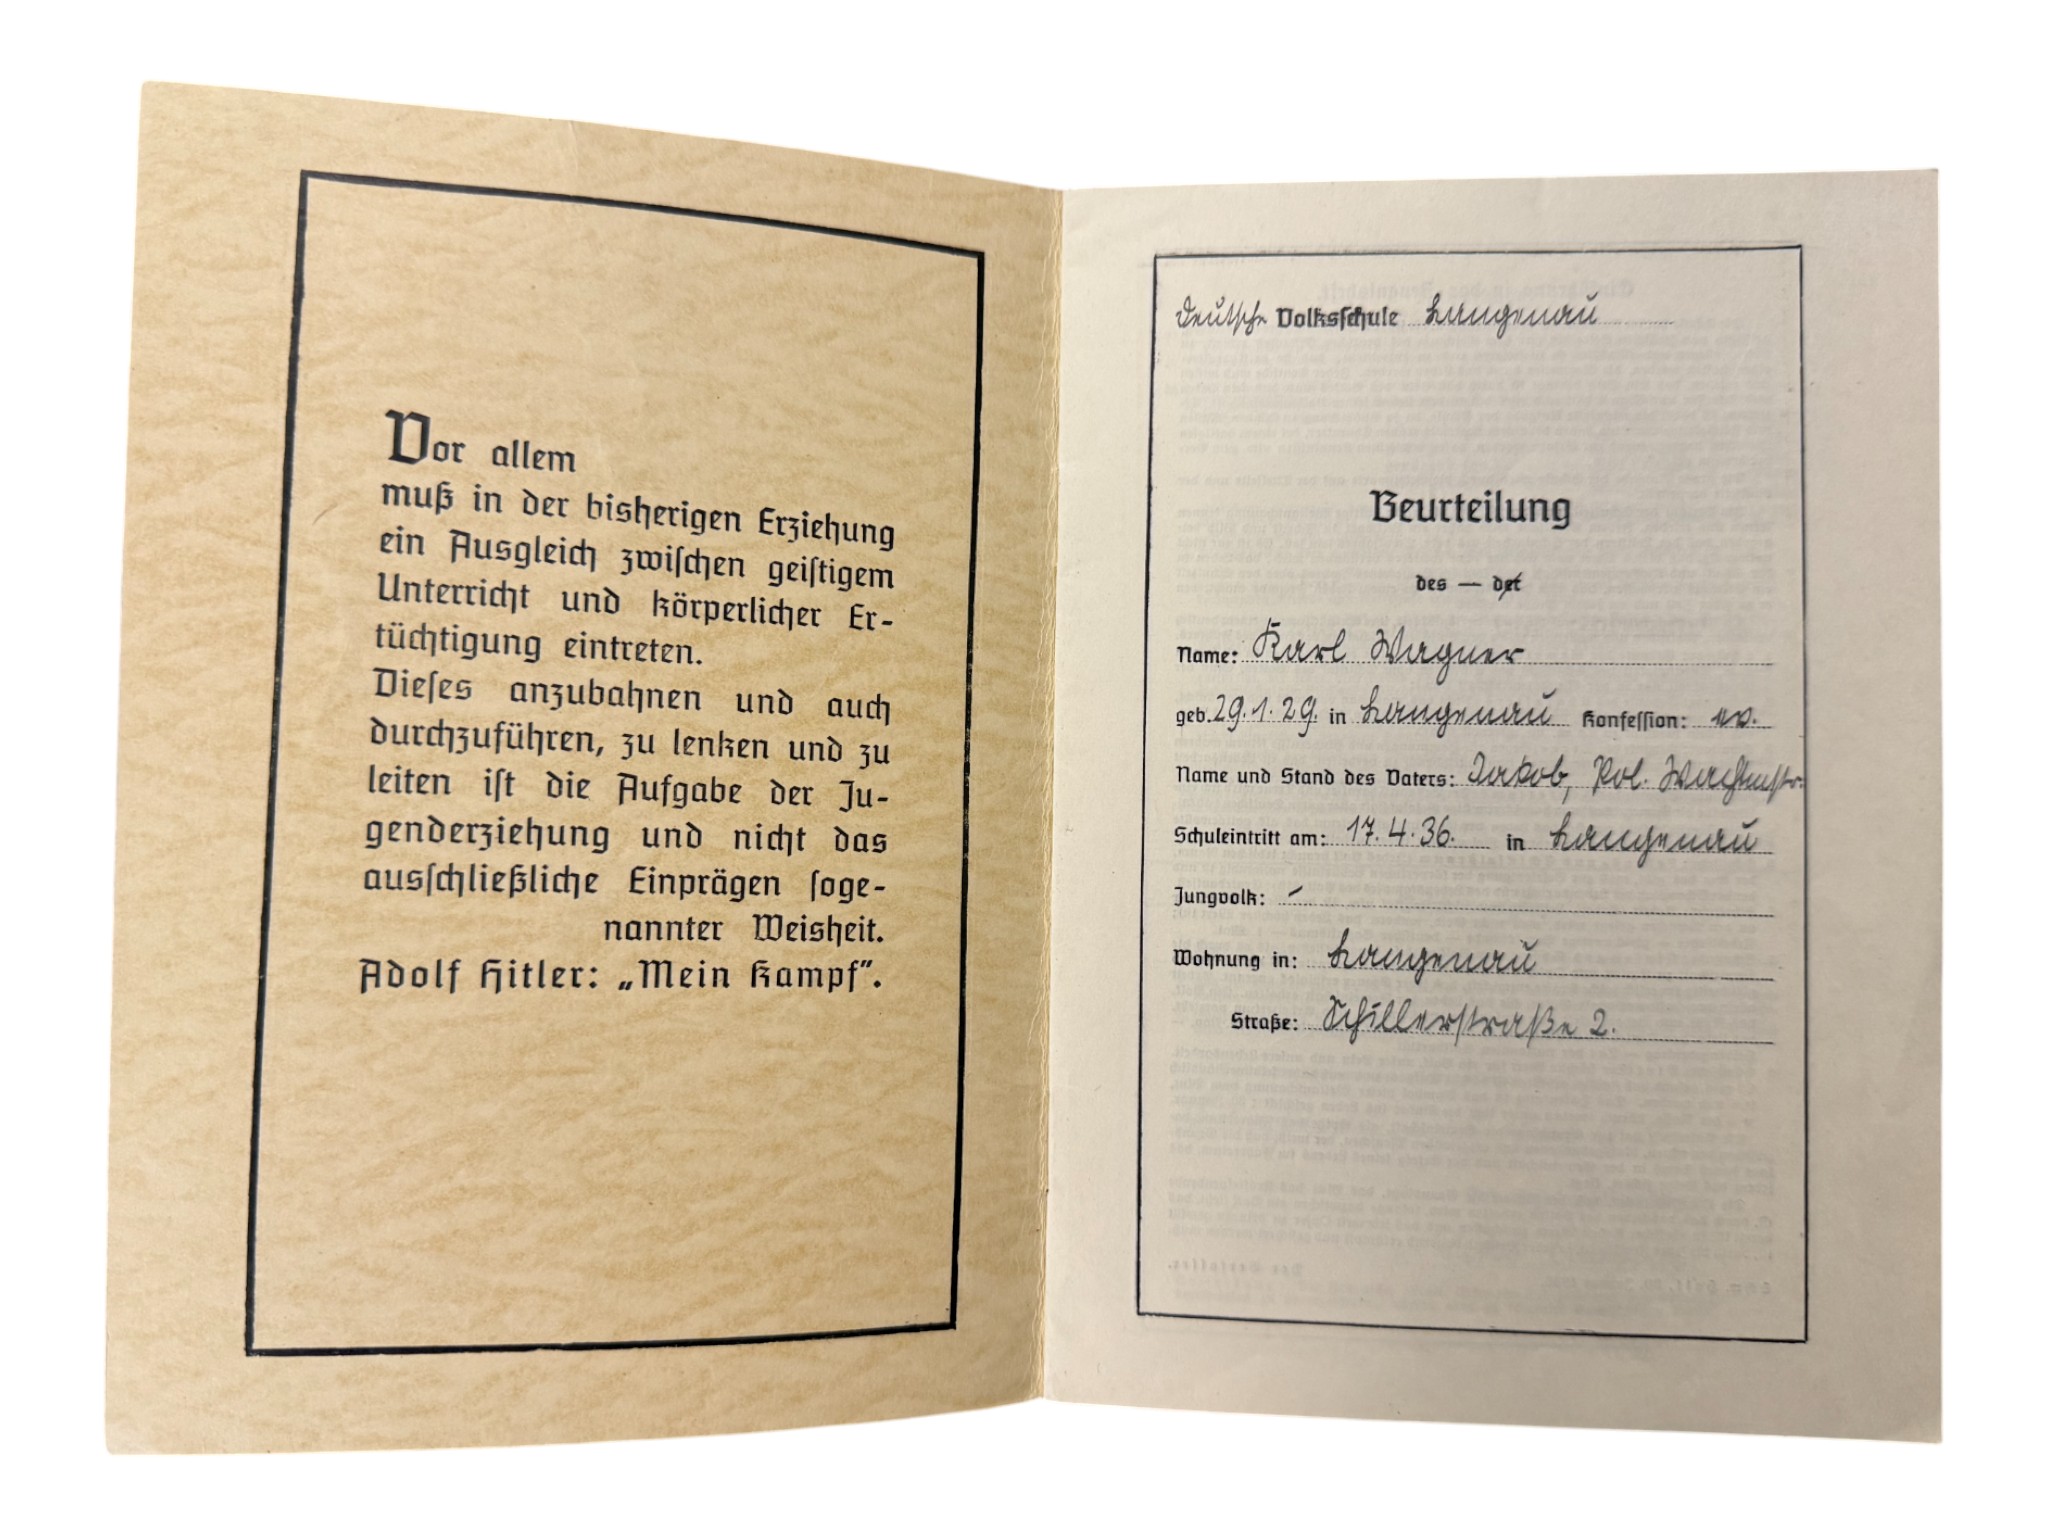 Vor allem
muß in der bisherigen Erziehung
ein Ausgleich zwischen geistigem
Unterricht und körperlicher Er-
tüchtigung eintreten.
Dieses anzubahnen und auch
durchzuführen, zu lenken und zu
leiten ist die Aufgabe der Ju-
genderziehung und nicht das
ausschließliche Einprägen soge-
nannter Weisheit.
Adolf Hitler: „Mein Kampf“.
Deutsche Volksschule Langenau
Beurteilung
des — der
Name: Karl Wagner
geb. 29.1.29. in Langenau Konfession: ev.
Name und Stand des Vaters: Jakob, Pol. Wachtmstr.
Schuleintritt am: 17.4.36. in Langenau
Jungvolk: –
Wohnung in: Langenau
Straße: Schillerstraße 2.